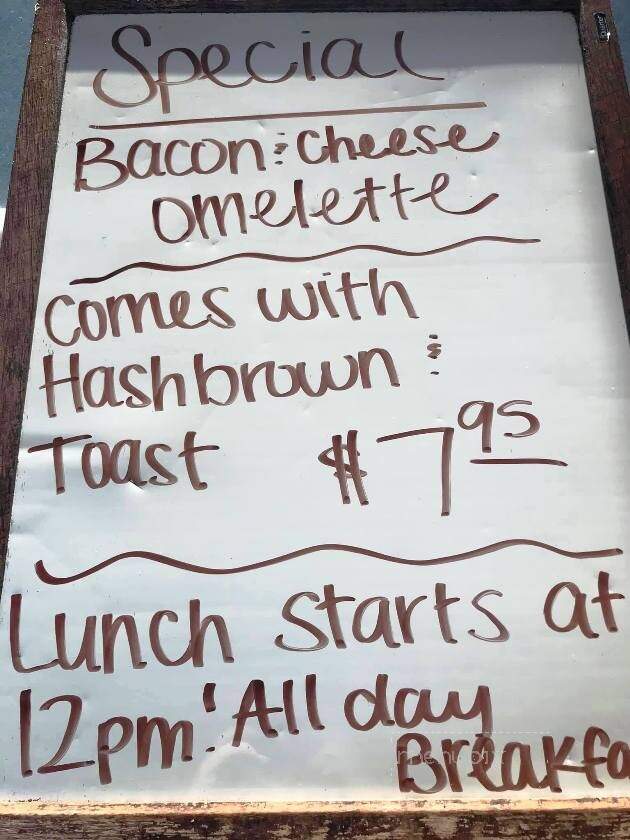 Special
Bacon & Cheese
Omelette
Comes with
Hashbrown &
Toast $7.95
Lunch starts at
12pm! All day
Breakfa